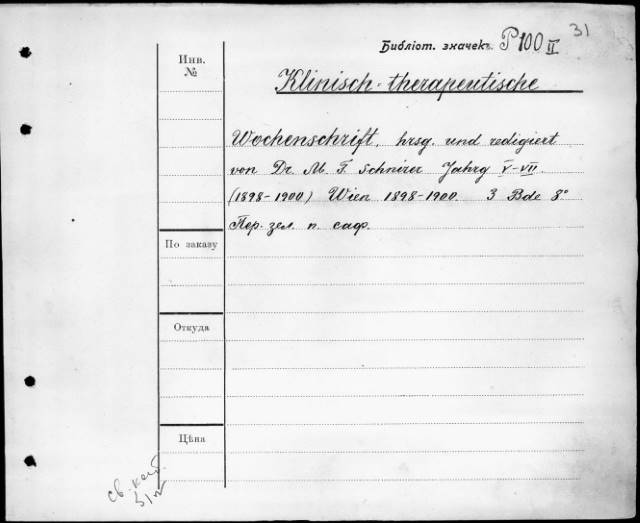 31
Библіот. значекъ P100 II
Инв.
№
Klinisch-therapeutische
Wochenschrift, hrsg. und redigiert
von Dr. M. T. Schnirer Jahrg V-VII.
(1898-1900) Wien 1898-1900. 3 Bde 8°
Пер. зел. п. саф.
По заказу
Откуда
Цѣна
св.
31